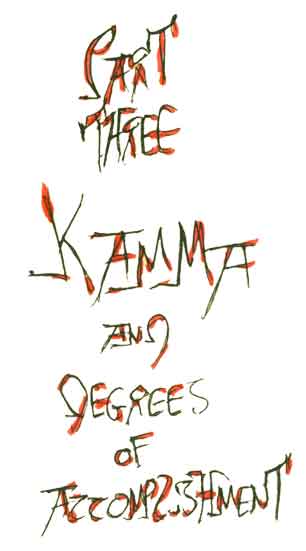 PART
THREE
KAMMA
AND
DEGREES
OF
ACCOMPLISHMENT